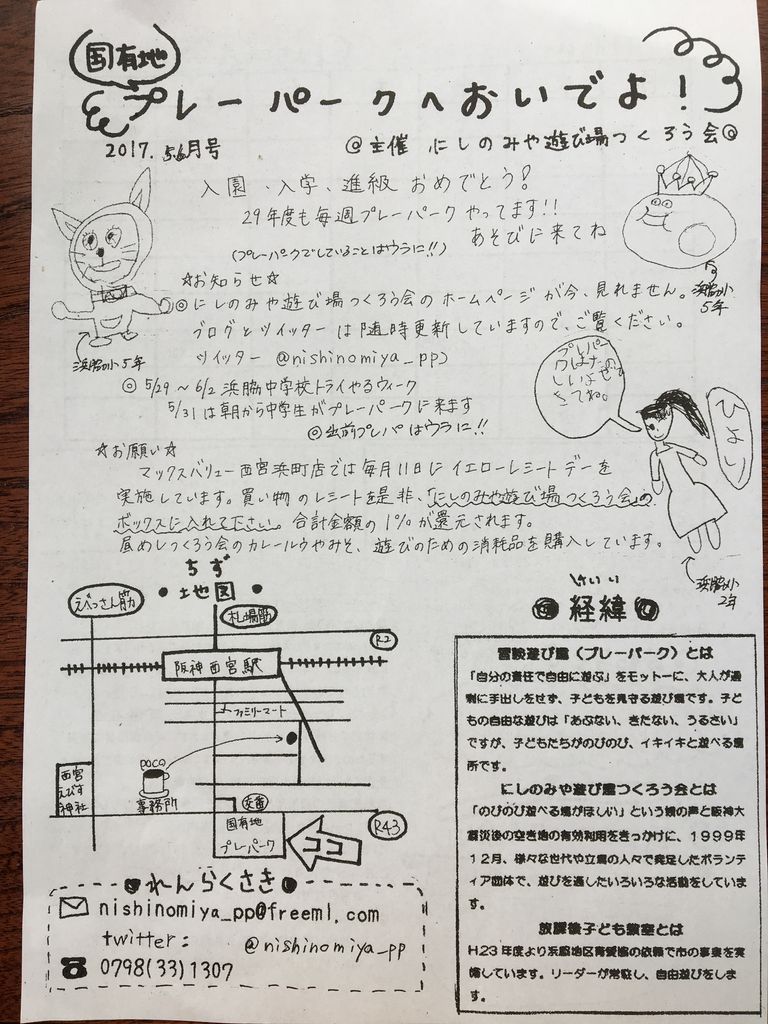 国有地
プレーパークへおいでよ！
2017. 5.6月号
@主催 にしのみや遊び場つくろう会@
入園、入学、進級 おめでとう！
29年度も毎週プレーパーク やってます!!
あそびに来てね
(プレーパークでしていることはウラに!!)
浜脇小5年
☆お知らせ☆
◎にしのみや遊び場つくろう会のホームページが今、見れません。
ブログとツイッターは随時更新していますので、ご覧ください。
ツイッター @nishinomiya_pp)
浜脇小5年
◎ 5/29～6/2 浜脇中学校トライやるウィーク
5/31は朝から中学生がプレーパークに来ます
◎出前プレパはウラに!!
プレーパー
クはたの
しいよぜひ
きてね。
ひょい
☆お願い☆
マックスバリュー西宮浜町店では毎月11日にイエローレシートデーを
実施しています。買い物のレシートを是非、「にしのみや遊び場つくろう会」の
ボックスに入れて下さい。合計金額の1%が還元されます。
昼めしつくろう会のカレールウやみそ、遊びのための消耗品を購入しています。
浜脇小
2年
ちず
・地図・
えべっさん筋
札場筋
R2
阪神西宮駅
ファミリーマート
poco
事務所
西宮
えびす
神社
交番
国有地
プレーパーク
ココ
R43
れんらくさき
nishinomiya_pp@freeml.com
twitter: @nishinomiya_pp
0798(33)1307
けいい
経緯
冒険遊び場（プレーパーク）とは
「自分の責任で自由に遊ぶ」をモットーに、大人が過
剰に手出しをせず、子どもを見守る遊び場です。子ど
もの自由な遊びは「あぶない、きたない、うるさい」
ですが、子どもたちがのびのび、イキイキと遊べる場
所です。
にしのみや遊び場つくろう会とは
「のびのび遊べる場がほしい」という親の声と阪神大
震災後の空き地の有効利用をきっかけに、1999年
12月、様々な世代や立場の人々で発足したボランテ
ィア団体で、遊びを通したいろいろな活動をしていま
す。
放課後子ども教室とは
H23年度より浜脇地区青愛協の依頼で市の事業を実
施しています。リーダーが常駐し、自由遊びをしま
す。